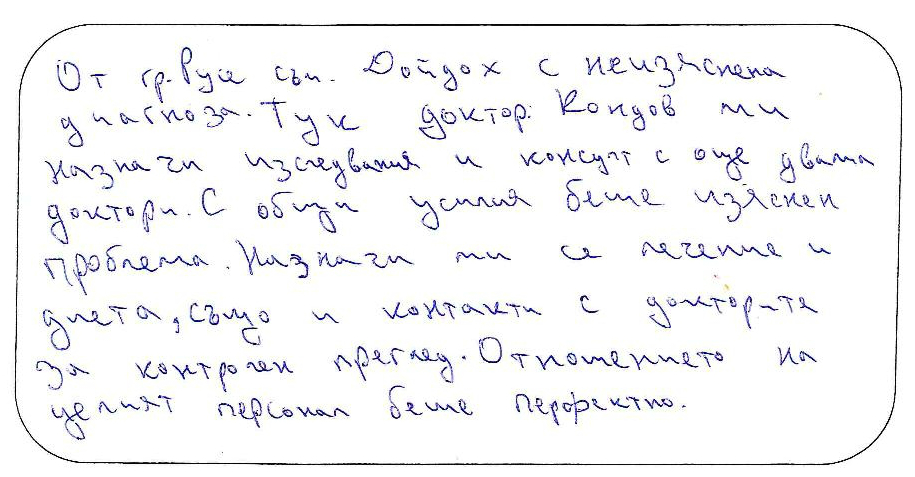 От гр. Русе съм. Дойдох с неизяснена
диагноза. Тук доктор. Кондов ми
назначи изследвания и консулт с още двама
доктори. С общи усилия беше изяснен
проблема. Назначи ми се лечение и
диета, също и контакти с докторите
за контролен преглед. Отношението на
целият персонал беше перфектно.